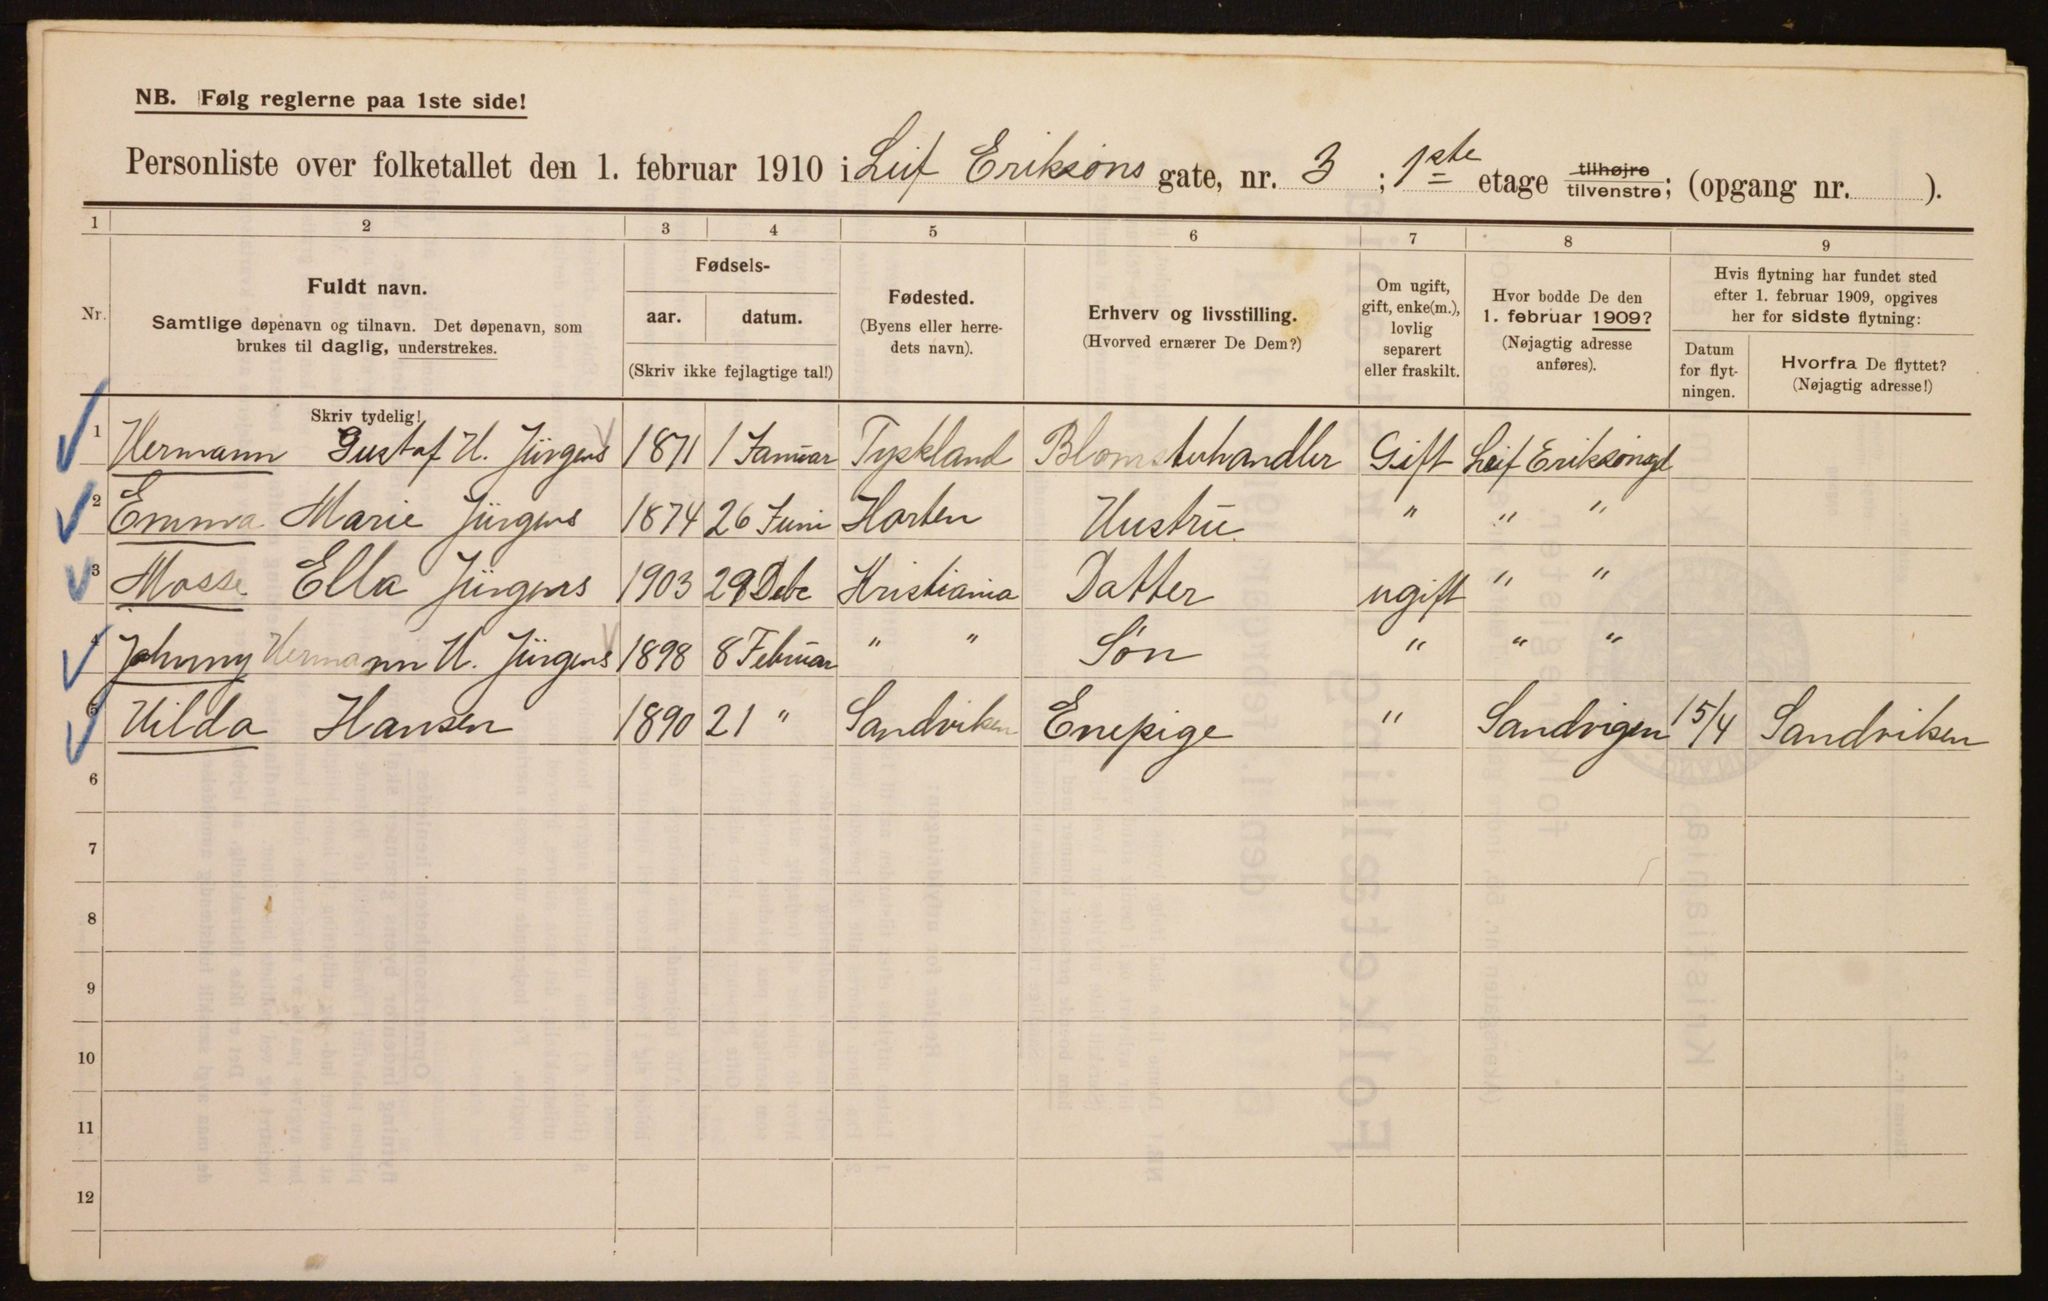 NB. Følg reglerne paa 1ste side!
Personliste over folketallet den 1. februar 1910 i Leif Eriksøns gate, nr. 3 ; 1ste etage tilhøjre tilvenstre; (opgang nr. ).
1 2 3 4 5 6 7 8 9
Nr.
Fuldt navn.
Samtlige døpenavn og tilnavn. Det døpenavn, som
brukes til daglig, understrekes.
Skriv tydelig!
Fødsels-
aar. datum.
(Skriv ikke fejlagtige tal!)
Fødested.
(Byens eller herre-
dets navn).
Erhverv og livsstilling.
(Hvorved ernærer De Dem?)
Om ugift,
gift, enke(m.),
lovlig
separert
eller fraskilt.
Hvor bodde De den
1. februar 1909?
(Nøjagtig adresse
anføres).
Hvis flytning har fundet sted
efter 1. februar 1909, opgives
her for sidste flytning:
Datum
for flyt-
ningen.
Hvorfra De flyttet?
(Nøjagtig adresse!)
1 Hermann Gustaf H. Jürgens 1871 1 Januar Tyskland Blomsterhandler Gift Leif Eriksønsgt
2 Emma Marie Jürgens 1874 26 Juni Horten Hustru " " "
3 Mosse Ella Jürgens 1903 29 Debc Kristiania Datter ugift " "
4 Johnny Hermann H. Jürgens 1898 8 Februar " " Søn " " "
5 Hilda Hansen 1890 21 " Sandviken Enepige " Sandvigen 15/4 Sandviken
6
7
8
9
10
11
12